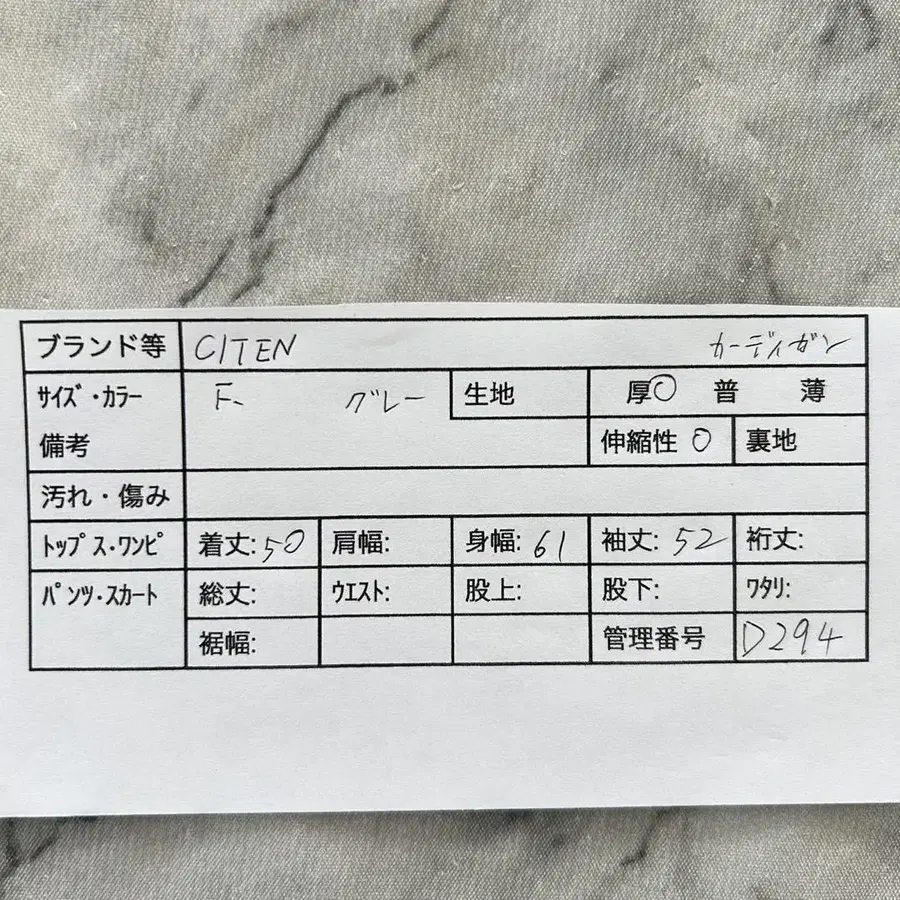 ブランド等 CITEN カーディガン
サイズ・カラー F グレー 生地 厚〇 普 薄
備考 伸縮性 〇 裏地
汚れ・傷み
トップス・ワンピ 着丈:50 肩幅: 身幅:61 袖丈:52 裄丈:
パンツ・スカート 総丈: ウエスト: 股上: 股下: ワタリ:
裾幅: 管理番号 D294